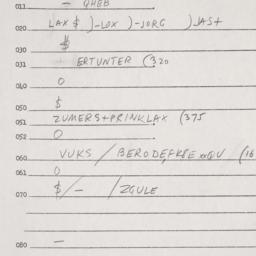 011 — QHEB
020 LAX $ )-LOX )-JORG )JAS+
$
030
031 ERTUNTER (320
040 0
050 $
051 ZUMERS+PRINKLAX (375
052 0
060 VUKS / (16
061 0
070 $/— /ZGULE
080 —